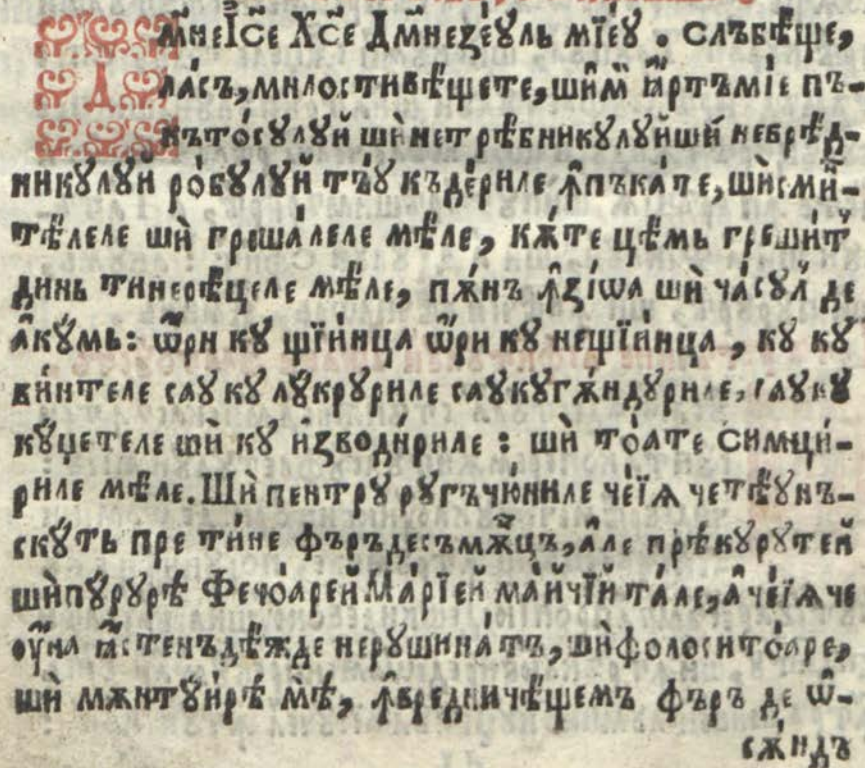 Дм҃не І҆с҃е Хс҃е Дм҃неꙁє́ꙋль мі́єꙋ . слъбѣ́ще,
ла́съ, милостивѣ́щете, шѝм꙽ ꙗ҆ртъ мі́е пъ-
кътѡ́сꙋлꙋй шѝ нетрѣ́бникꙋлꙋй шѝ небрѣ́д-
никꙋлꙋй рѡ́бꙋлꙋй тъ́ꙋ къде́риле ꙟ҆пъка́те, шѝ смѝн-
тѣ́леле шѝ греша́леле мѣ́ле, кѫ́те цѣ́мь греши́т꙽
динь тинерѣ́целе мѣ́ле, пѫ́нъ ꙟ҆ꙁі́ѡа шѝ ча́сꙋл꙽ де
а҆кꙋ́мь: ѡ҆́ри кꙋ щїи́нца ѡ҆́ри кꙋ нещїи́нца , кꙋ кꙋ
ви́нтеле саꙋ кꙋ лꙋ́крꙋриле саꙋ кꙋ гѫ́ндꙋриле, саꙋ кꙋ
кꙋ́џетеле шѝ кꙋ и҆ꙁводи́риле : шѝ то́ате симци́-
риле мѣ́ле. Шѝ пентрꙋ рꙋгъчю́ниле че́їѧ че тѣ́ꙋ нъ-
скꙋ́ть пре ти́не фъръ де съмѫ́нцъ, а҆ле прѣ́кꙋрꙋтей
шѝ пꙋ́рꙋрѣ Фечо́арей Марі́ей ма́йчїй та́ле, а҆ че́їѧ че
ᲂу҆́на ꙗ҆́сте нъдѣ́жде нерꙋшина́тъ, шѝ фолоситоа́ре,
шѝ мѫнтꙋи́рѣ мѣ̀, ꙟ҆вредничѣ́щемъ фъръ де ѡ҆-
сѫ́ндъ